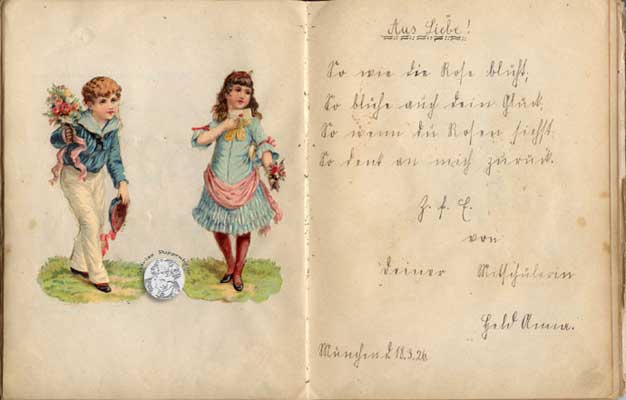 Aus Liebe!
So wie die Rose blüht,
So blühe auch dein Glück,
So wenn du Rosen siehst
So denk an mich zurück.
Z. f. E.
von
deiner Mitschülerin
Held Anna.
München d. 18.3.26.